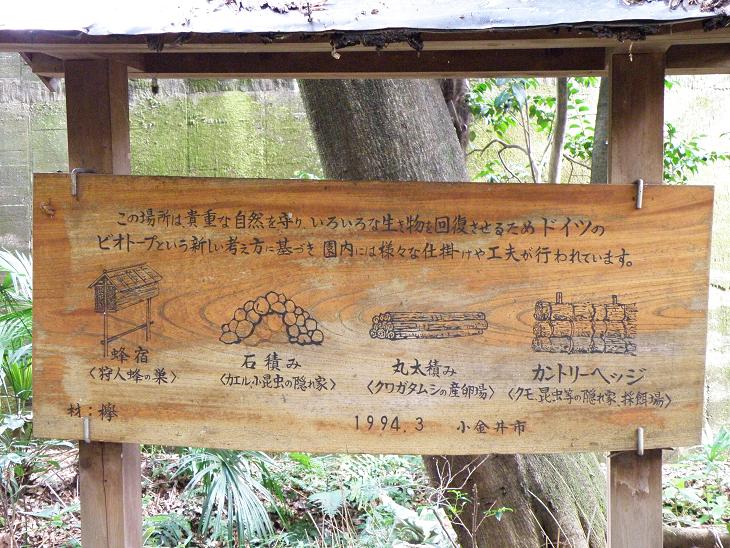 この場所は、貴重な自然を守り、いろいろな生き物を回復させるためドイツの
ビオトープという新しい考え方に基づき 園内には様々な仕掛けや工夫が行われています。
蜂宿
〈狩人蜂の巣〉
石積み
〈カエル、小昆虫の隠れ家〉
丸太積み
〈クワガタムシの産卵場〉
カントリーヘッジ
〈クモ、昆虫等の隠れ家、採餌場〉
材:欅
1994.3 小金井市